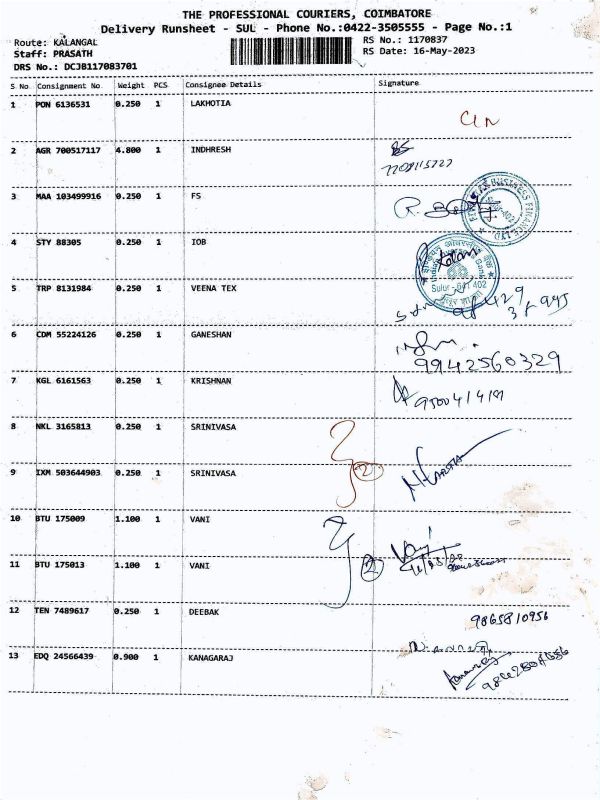 THE PROFESSIONAL COURIERS, COIMBATORE
Delivery Runsheet - SUL - Phone No.:0422-3505555 - Page No.:1
Route: KALANGAL
RS No.: 1170837
Staff: PRASATH
RS Date: 16-May-2023
DRS No.: DCJB117083701
S No Consignment No Weight PCS Consignee Details Signature
1 PON 6136531 0.250 1 LAKHOTIA
2 AGR 700517117 4.800 1 INDHRESH
3 MAA 103499916 0.250 1 FS
4 STY 88305 0.250 1 IOB
Sulur - 641 402
5 TRP 8131984 0.250 1 VEENA TEX
6 CDM 55224126 0.250 1 GANESHAN
9942560329
7 KGL 6161563 0.250 1 KRISHNAN
8 NKL 3165813 0.250 1 SRINIVASA
2
9 IXM 503644903 0.250 1 SRINIVASA
10 BTU 175009 1.100 1 VANI
Vani
2
11 BTU 175013 1.100 1 VANI
12 TEN 7489617 0.250 1 DEEBAK
9865810956
13 EDQ 24566439 0.900 1 KANAGARAJ